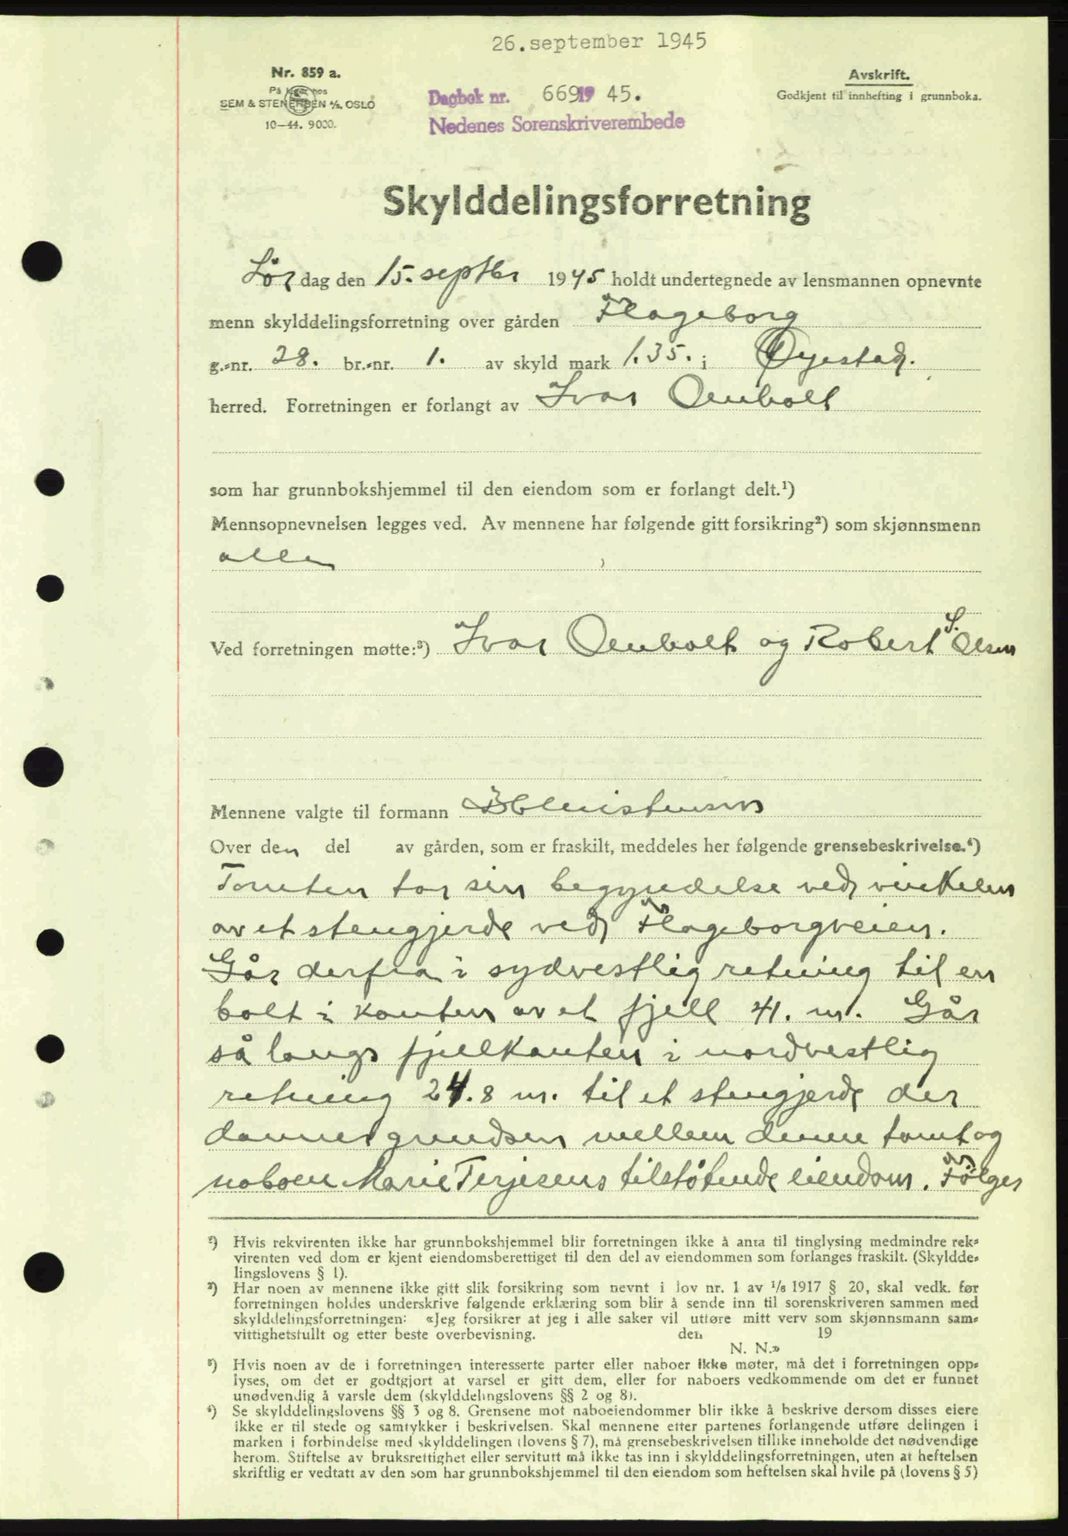 26.september 1945
Nr. 859 a.
På lager hos
SEM & STENERSEN A/S. OSLO
10-44. 9000.
Avskrift.
Godkjent til innhefting i grunnboka.
Dagbok nr. 669 19 45.
Nedenes Sorenskriverembede
Skylddelingsforretning
Lør dag den 15. septbr 1945 holdt undertegnede av lensmannen opnevnte
menn skylddelingsforretning over gården Flageborg
g.-nr. 28. br.-nr. 1. av skyld mark 1.35. i Øyestad.
herred. Forretningen er forlangt av Ivar Omholt
som har grunnbokshjemmel til den eiendom som er forlangt delt.¹)
Mennsopnevnelsen legges ved. Av mennene har følgende gitt forsikring²) som skjønnsmenn
alle
Ved forretningen møtte:³) Ivar Omholt og Robert S. Olsen
Mennene valgte til formann Christensen
Over den del av gården, som er fraskilt, meddeles her følgende grensebeskrivelse.⁴)
Tomten tar sin begyndelse ved vinkelen
av et stengjerde ved Flageborgveien.
Går derfra i sydvestlig retning til en
bolt i kanten av et fjell 41. m. Går
så langs fjellkanten i nordvestlig
retning 24.8 m. til et stengjerde der
danner grendsen mellem denne tomt og
naboen Marie Terjesens tilstøtende eiendom. Følger
¹) Hvis rekvirenten ikke har grunnbokshjemmel blir forretningen ikke å anta til tinglysing medmindre rek-
virenten ved dom er kjent eiendomsberettiget til den del av eiendommen som forlanges fraskilt. (Skyldde-
lingslovens § 1).
²) Har noen av mennene ikke gitt slik forsikring som nevnt i lov nr. 1 av 1/6 1917 § 20, skal vedk. før
forretningen holdes underskrive følgende erklæring som blir å sende inn til sorenskriveren sammen med
skylddelingsforretningen: «Jeg forsikrer at jeg i alle saker vil utføre mitt verv som skjønnsmann sam-
vittighetsfullt og etter beste overbevisning. den 19
N. N.»
³) Hvis noen av de i forretningen interesserte parter eller naboer ikke møter, må det i forretningen opp-
lyses, om det er godtgjort at varsel er gitt dem, eller for naboers vedkommende om det er funnet
unødvendig å varsle dem (skylddelingslovens §§ 2 og 8).
⁴) Se skylddelingslovens §§ 3 og 8. Grensene mot naboeiendommer blir ikke å beskrive dersom disses eiere
ikke er til stede og samtykker i beskrivelsen. Skal mennene etter partenes forlangende utføre delingen i
marken i forbindelse med skylddelingen (lovens § 7), må grensebeskrivelsen tillike inneholde det nødvendige
herom. Stiftelse av bruksrettighet eller servitutt må ikke tas inn i skylddelingsforretningen, uten at heftelsen
skriftlig er vedtatt av den som har grunnbokshjemmel til den eiendom som heftelsen skal hvile på (lovens § 5)